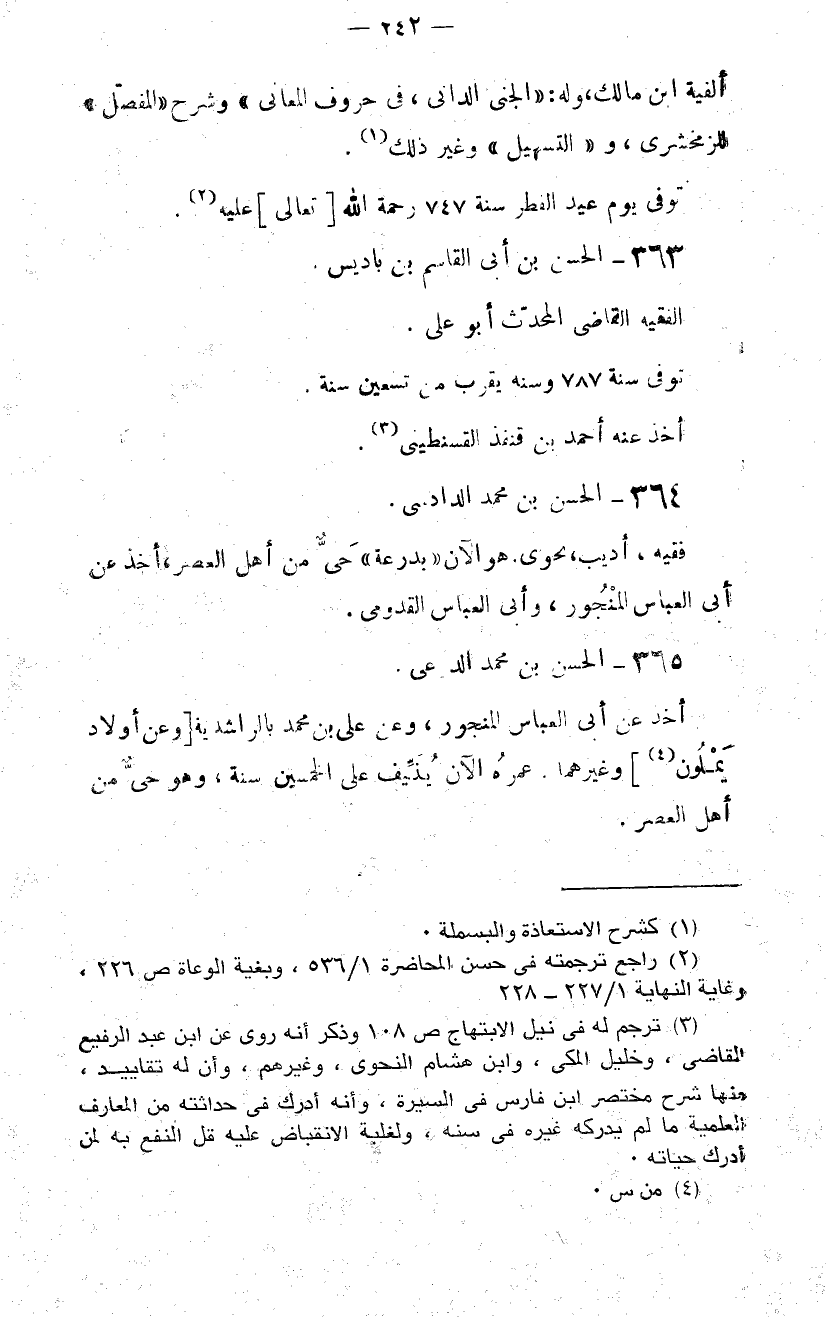 — ٢٤٢ —
ألفية ابن مالك، وله: «الجنى الدانى ، فى حروف المعانى » وشرح «المفصّل »
للزمخشرى ، و « التسهيل » وغير ذلك(١) .
توفى يوم عيد الفطر سنة ٧٤٧ رحمة الله [ تعالى ] عليه(٢) .
٣٦٣ – الحسن بن أبى القاسم بن باديس .
الفقيه القاضى المحدّث أبو على .
توفى سنة ٧٨٧ وسنه يقرب من تسعين سنة .
أخذ عنه أحمد بن قنفذ القسنطينى(٣) .
٣٦٤ – الحسن بن محمد .
فقيه ، أديب، نحوى. هو الآن «بدرعة» حَىٌّ من أهل العصر، أخذ عن
أبى العباس المنْجُور ، وأبى العباس القدومى .
٣٦٥ – الحسن بن محمد .
أخذ عن أبى العباس المنجور ، وعن على بن محمد بالراشدية [وعن أولاد
يَمْلُون(٤) ] وغيرهما . عمرهُ الآن يُنَيِّف على الخمسين سنة ، وهو حىٌّ من
أهل العصر .
(١) كشرح الاستعاذة والبسملة ٠
(٢) راجع ترجمته فى حسن المحاضرة ٥٣٦/١ ، وبغية الوعاة ص ٢٢٦ ،
وغاية النهاية ٢٢٧/١ – ٢٢٨
(٣) ترجم له فى نيل الابتهاج ص ١٠٨ وذكر أنه روى عن ابن عبد الرفيع
القاضى ، وخليل المكى ، وابن هشام النحوى ، وغيرهم ، وأن له تقاييد ،
منها شرح مختصر ابن فارس فى السيرة ، وأنه أدرك فى حداثته من المعارف
العلمية ما لم يدركه غيره فى سنه ، ولغلبة الانقباض عليه قل النفع به لمن
أدرك حياته ٠
(٤) من س ٠